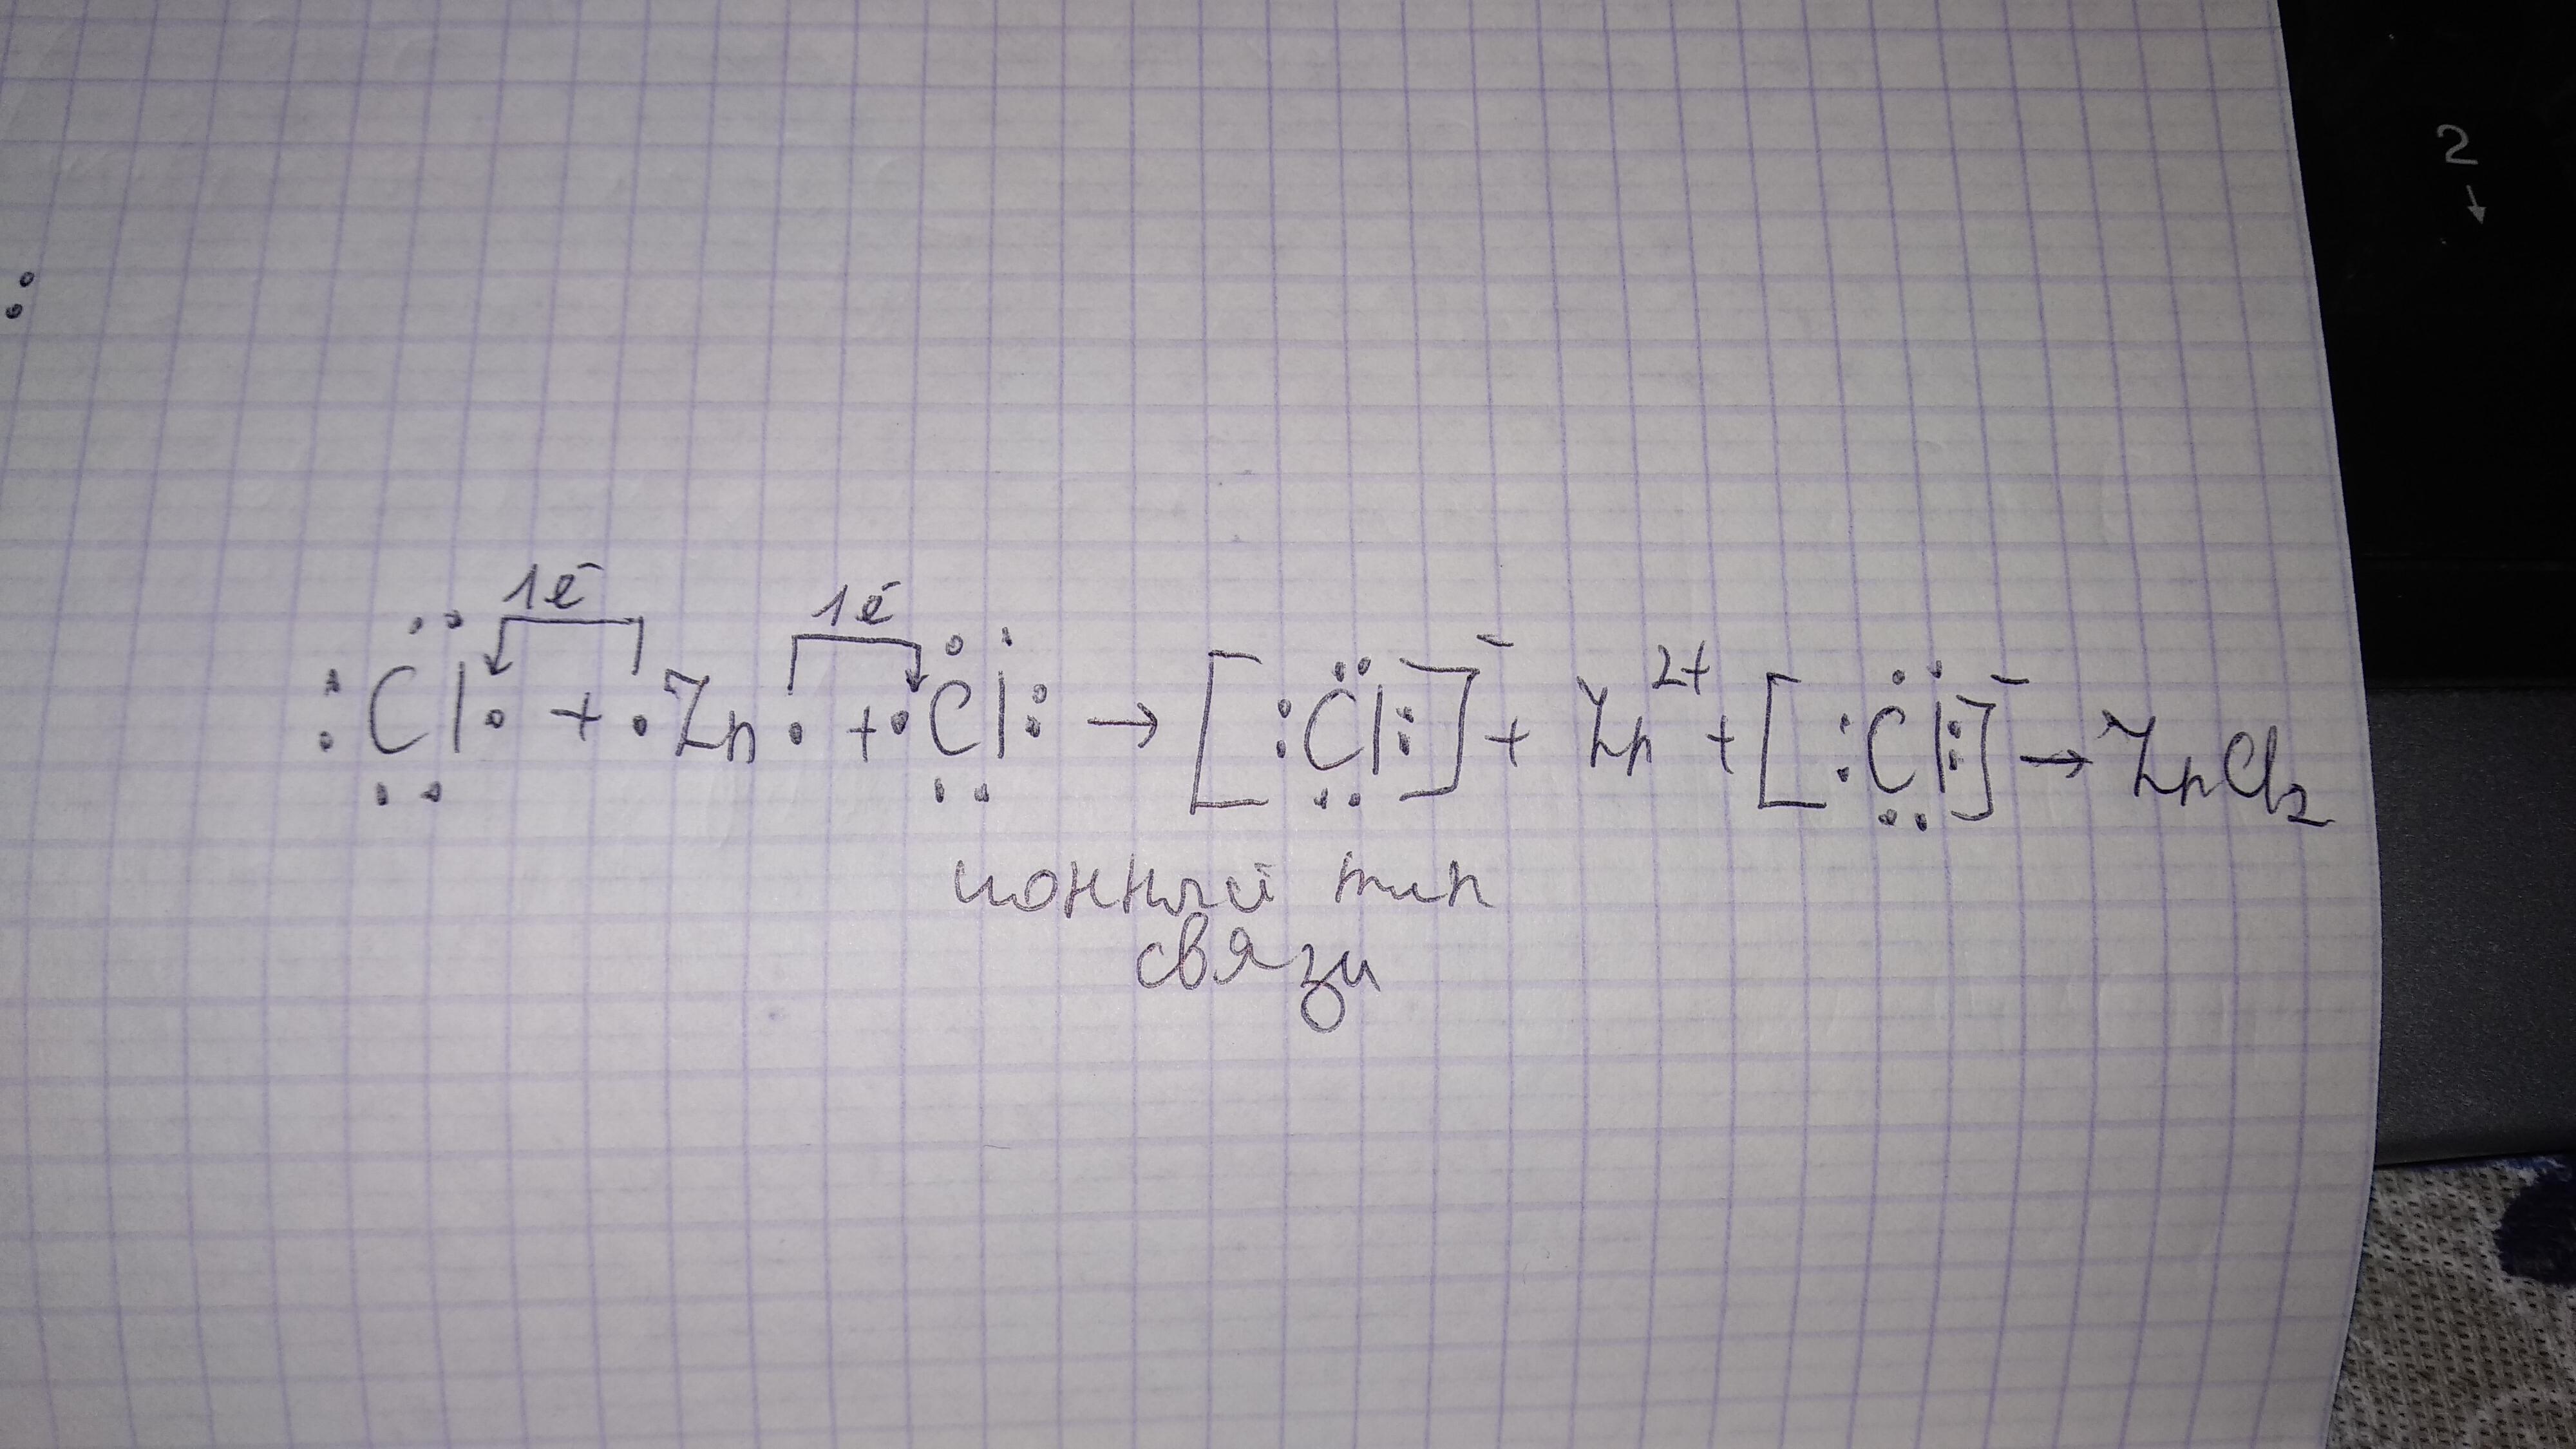 2
1ē 1ē
:Cl· + ·Zn· + ·Cl: → [:Cl:]⁻ + Zn²⁺ + [:Cl:]⁻ → ZnCl₂
ионный тип
связи